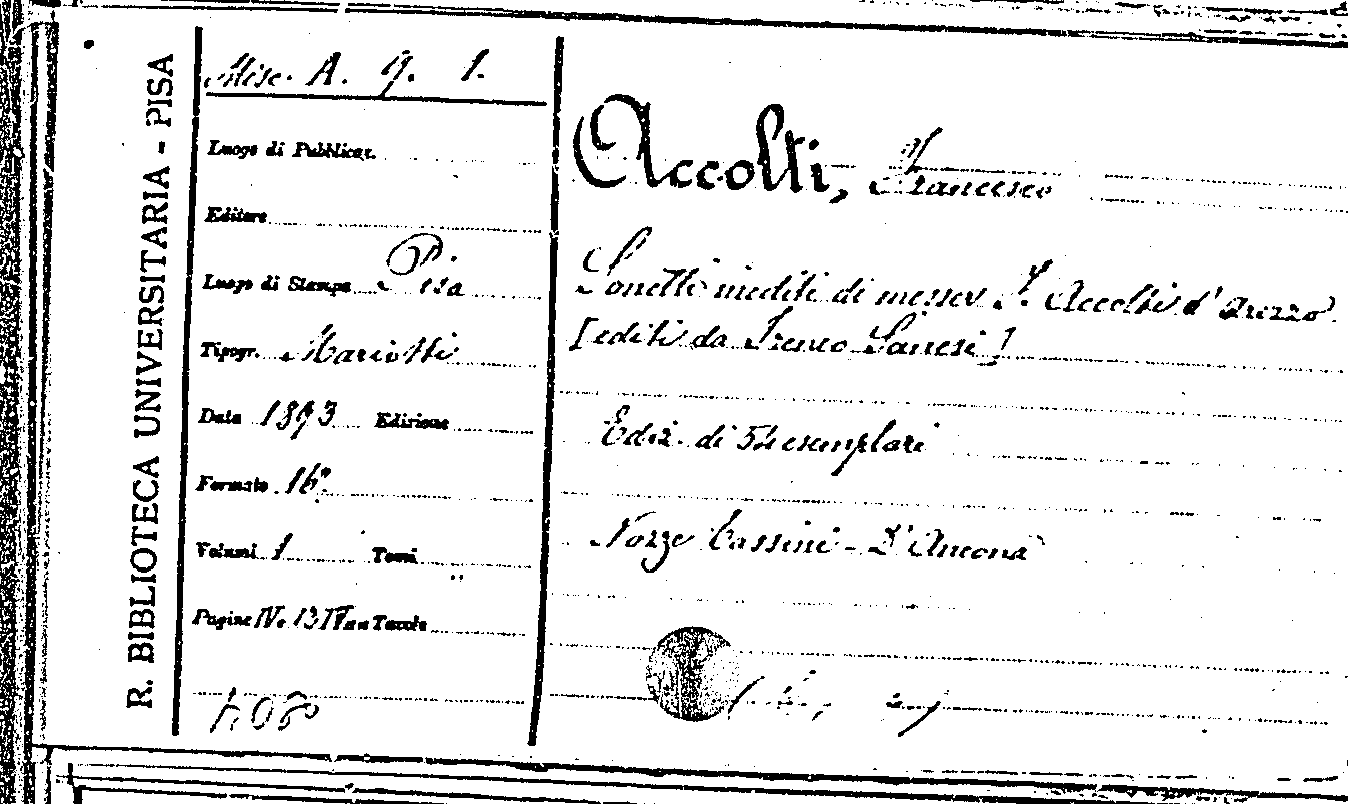 R. BIBLIOTECA UNIVERSITARIA - PISA
Misc. A. 9. 1.
Luogo di Pubblicaz.
Editore
Luogo di Stampa Pisa
Tipogr. Mariotti
Data 1893 Edizione
Formato 16°.
Volumi 1 Tomi
Pagine Tavole
Accolti, Francesco
Sonetti inediti di messer F. Accolti d'Arezzo
[editi da Ireneo Sanesi]
Ediz. di 54 esemplari
Nozze Cassini - D'Ancona